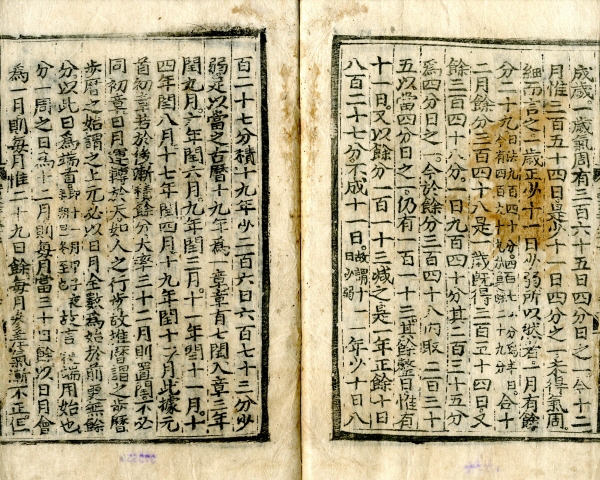 成歲一歲氣周有三百六十五日四分日之一今十二
月惟三百五十四日是少十一日四分之一未得氣周
細而言之一歲正少十一日少弱所以然者一月有餘
分二十九日法九百四十分四百七十分爲半日今有四百九十九故餘二十九分合十
二月餘分三百四十八是一歲旣得三百五十四日又
餘三百四十八分一日九百四十分其二百三十五分
爲四分日之一今於餘分三百四十八內取二百三十
五以當四分日之一仍有一百一十三其餘整日惟有
十一日又以餘分一百一十三減之是一年正餘十日
八百二十七分不成十一日故謂十一日少弱一年少十日八
百二十七分積十九年少二百六日六百七十三分少
弱足以當之古曆十九年爲一章章有七閏入章三年
閏九月六年閏六月九年閏三月十一年閏十一月十
四年閏八月十七年閏四月十九年閏十二月此據元
首初章若於後漸積餘分大率三十二月則置閏不必
同初章日月運轉於天如人之行步故推曆謂之步曆
步曆之始謂之上元必以日月全數爲始於前更無餘
分以此日爲端首卽十一月甲子夜半朔旦冬至也故言履端用始也
分一周之日爲十二月則每月當三十日餘以日月會
爲一月則每月惟二十九日餘每月參差氣漸不正但